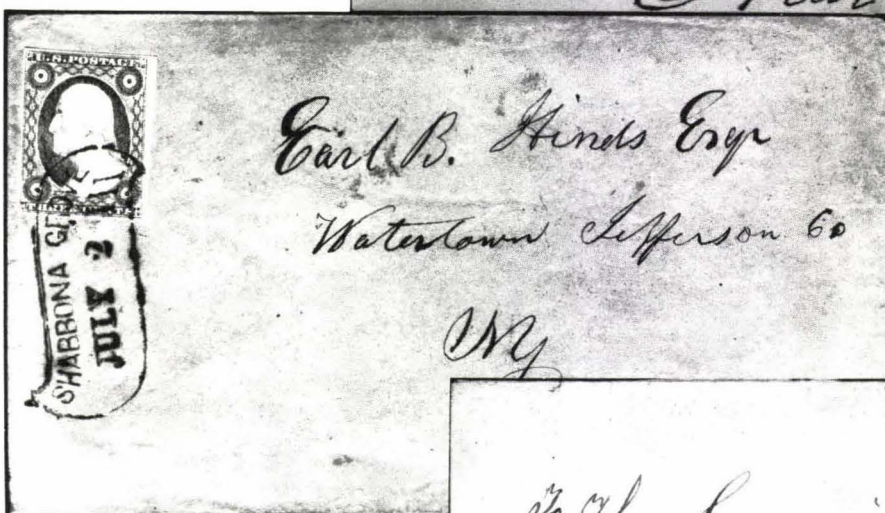 U.S. POSTAGE
SHABBONA G
JULY 2
Earl B. Hinds Esqr
Watertown Jefferson Co
NY